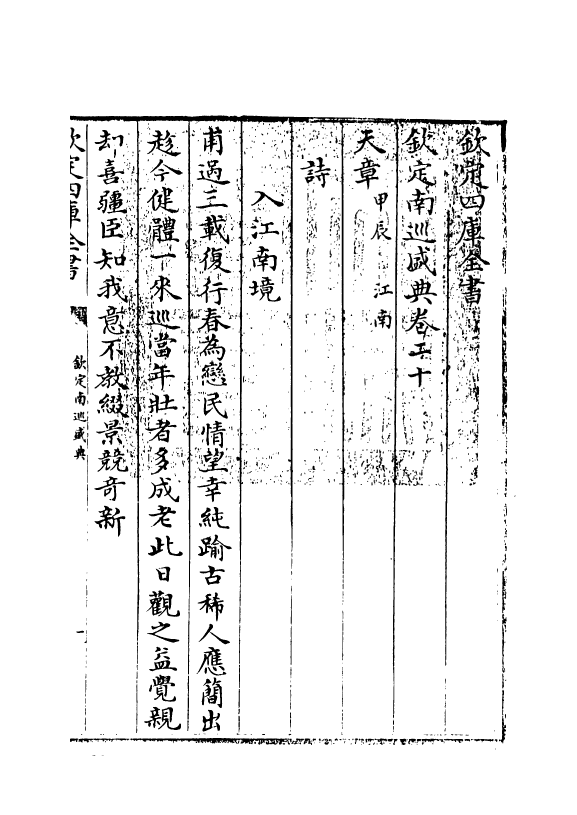 欽定四庫全書
欽定南巡盛典卷五十
天章 甲辰 江南
詩
入江南境
甫過三載復行春為戀民情望幸純踰古稀人應簡出
趁今健體一來巡當年壯者多成老此日觀之益覺親
却喜疆臣知我意不教綴景競奇新
欽定四庫全書
欽定南巡盛典
一